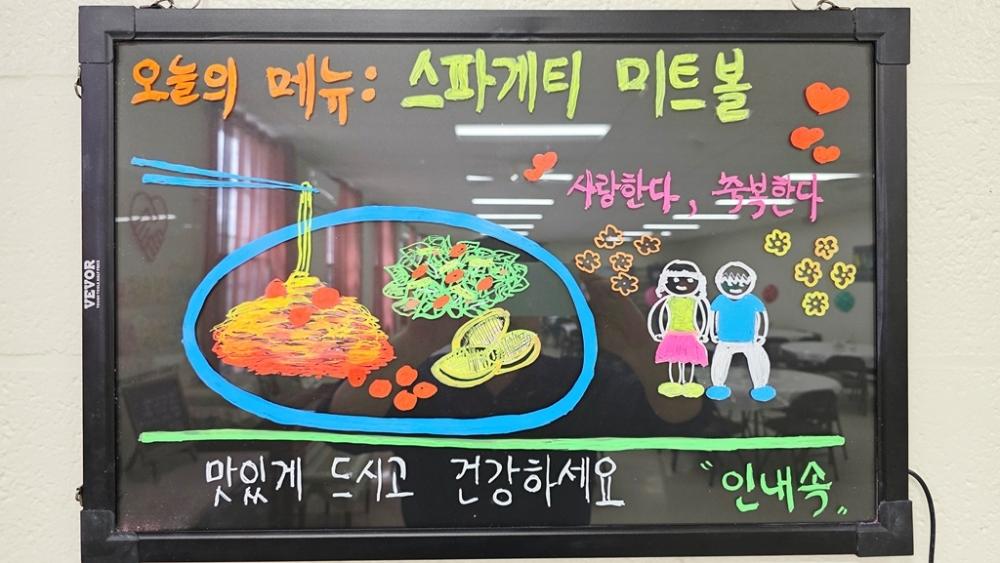 오늘의 메뉴: 스파게티 미트볼
사랑한다, 축복한다
맛있게 드시고 건강하세요 "인내속"
VEVOR